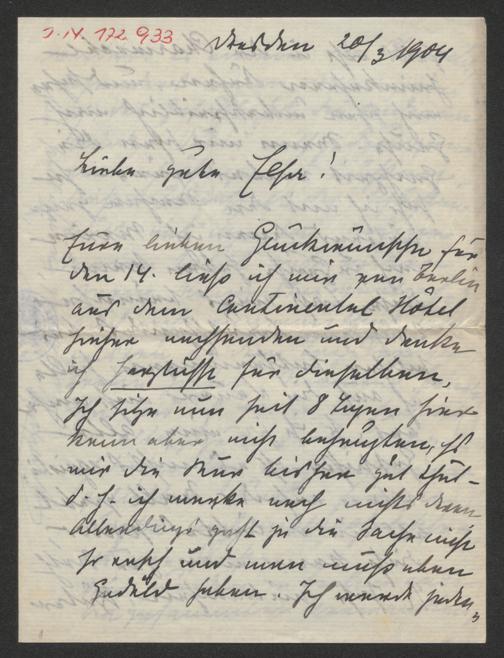 I.N. 172 933
Dresden 20/3 1904
Liebe gute Elsa!
Eure lieben Glückwünsche für
den 14. ließ ich mir von Berlin
aus dem Continental Hôtel
hieher nachsenden und danke
ich herzlichst für dieselben.
Ich sitze nun seit 8 Tagen hier
kann aber nicht behaupten, es
mir die Kur bisher gut thut –
d. h. ich merke noch nichts davon,
Allerdings geht ja die Sache nicht
so rasch und man muß eben
Geduld haben. Ich werde jeden